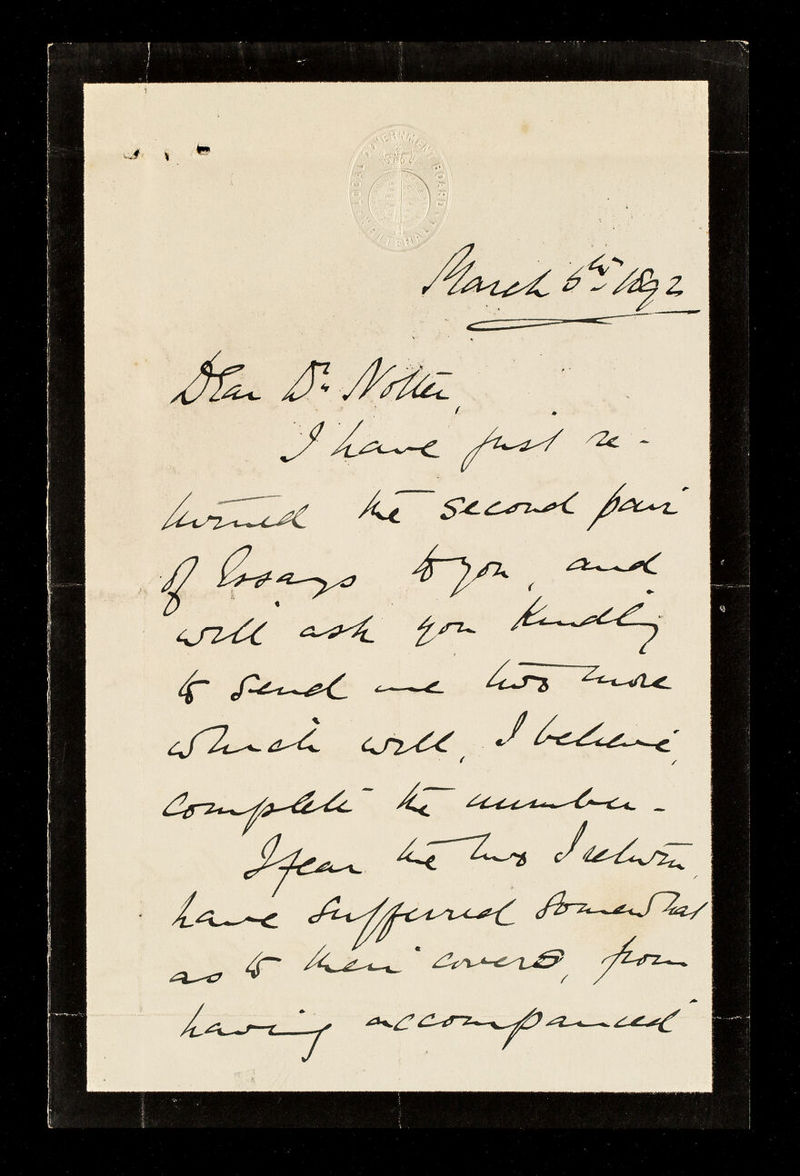 LOCAL GOVERNMENT BOARD
WHITEHALL
March 5th 1892
Dear Dr. Notter,
I have just re-
turned the second pair
of Essays to you, and
will ask you kindly
to send me two more
which will, I believe,
complete the number.
I fear the two I return,
have sufferred somewhat
as to their covers, from
having accompanied